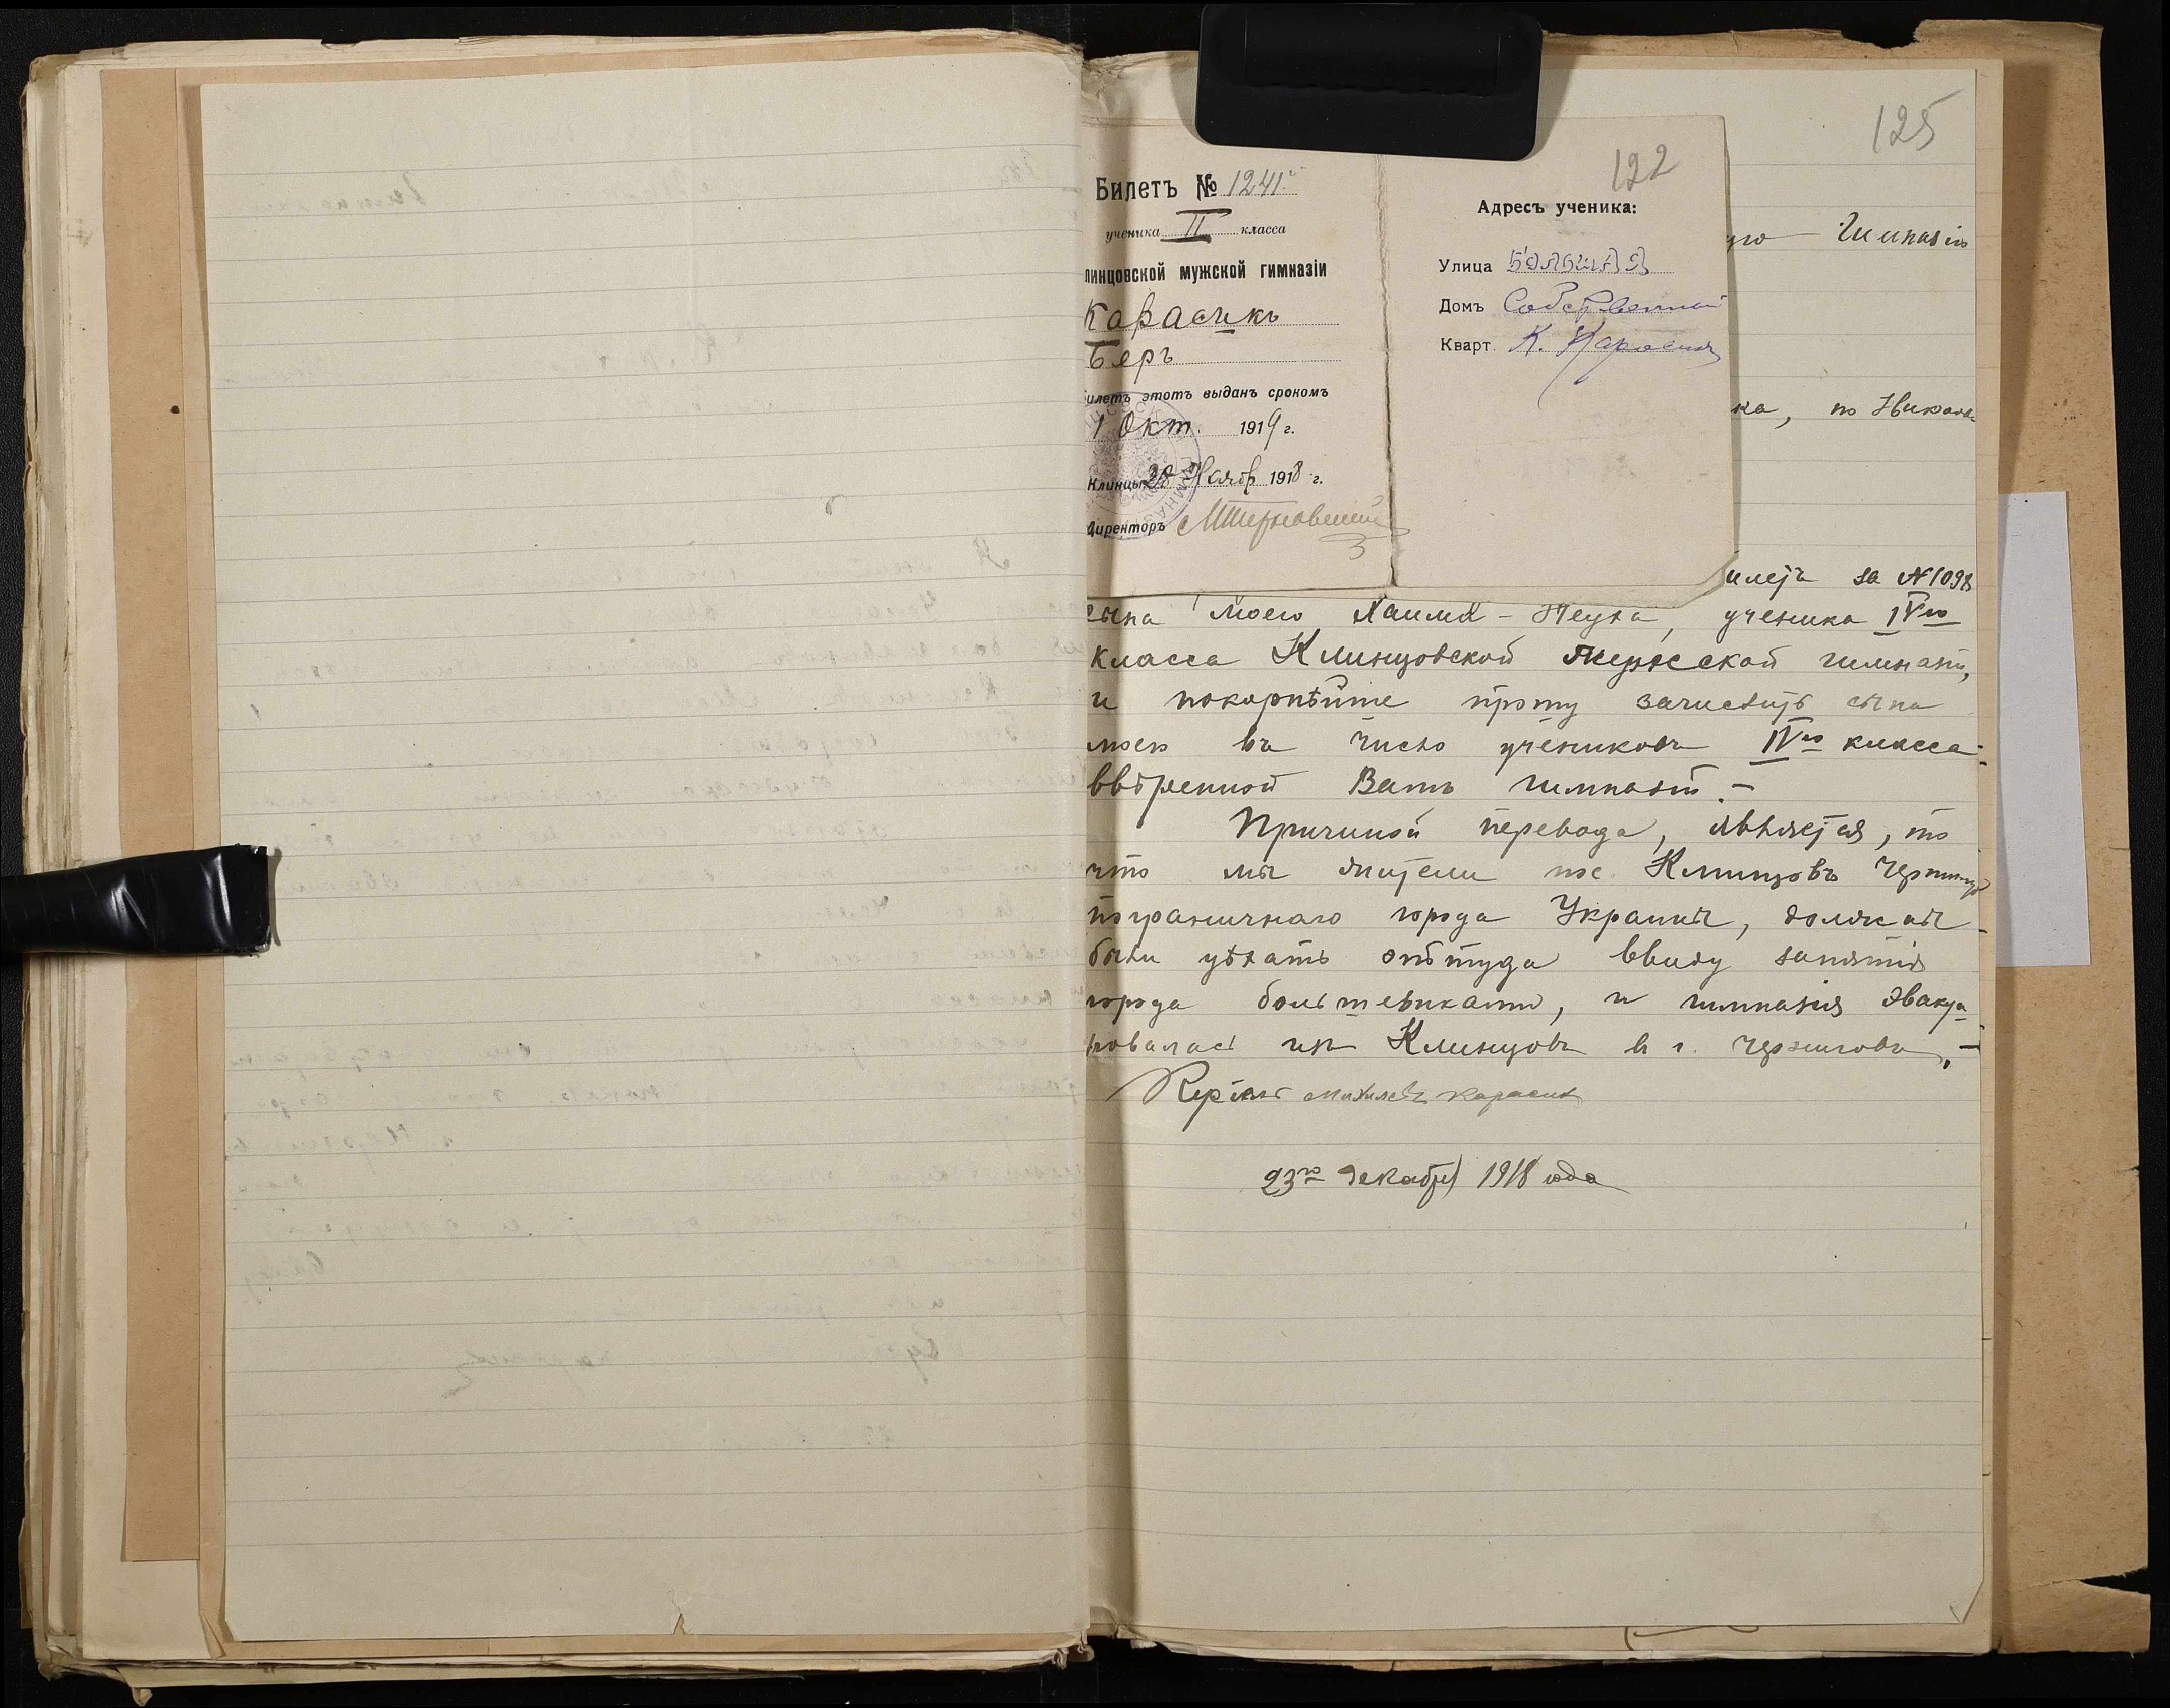 125
122
Билетъ № 1241
ученика II класса
линцовской мужской гимназіи
Карасикъ
Беръ
илетъ этотъ выданъ срокомъ
1 Окт. 1919 г.
Клинцы 28 Нояб 1918 г.
Директоръ
Адресъ ученика:
Улица БОЛЬШАЯ
Домъ Собственный
Кварт. К. Карасикъ
ую Гимназію
ка, по
илетъ за №1098
сына моего Хаима, ученика IVго
класса Клинцовской мужской гимназіи,
и покорнѣйше прошу зачислить сына
моего въ число учениковъ IVго класса
ввѣренной Вамъ гимназіи.–
Причиной перевода, является, то
что мы жители пос. Клинцовъ
пограничнаго города Украины, должны
были уѣхать оттуда ввиду занятія
города большевиками, и гимназія эвакуи-
ровалась изъ Клинцовъ въ г. Черниговъ.–
Карасикъ
23го Декабря 1918 года